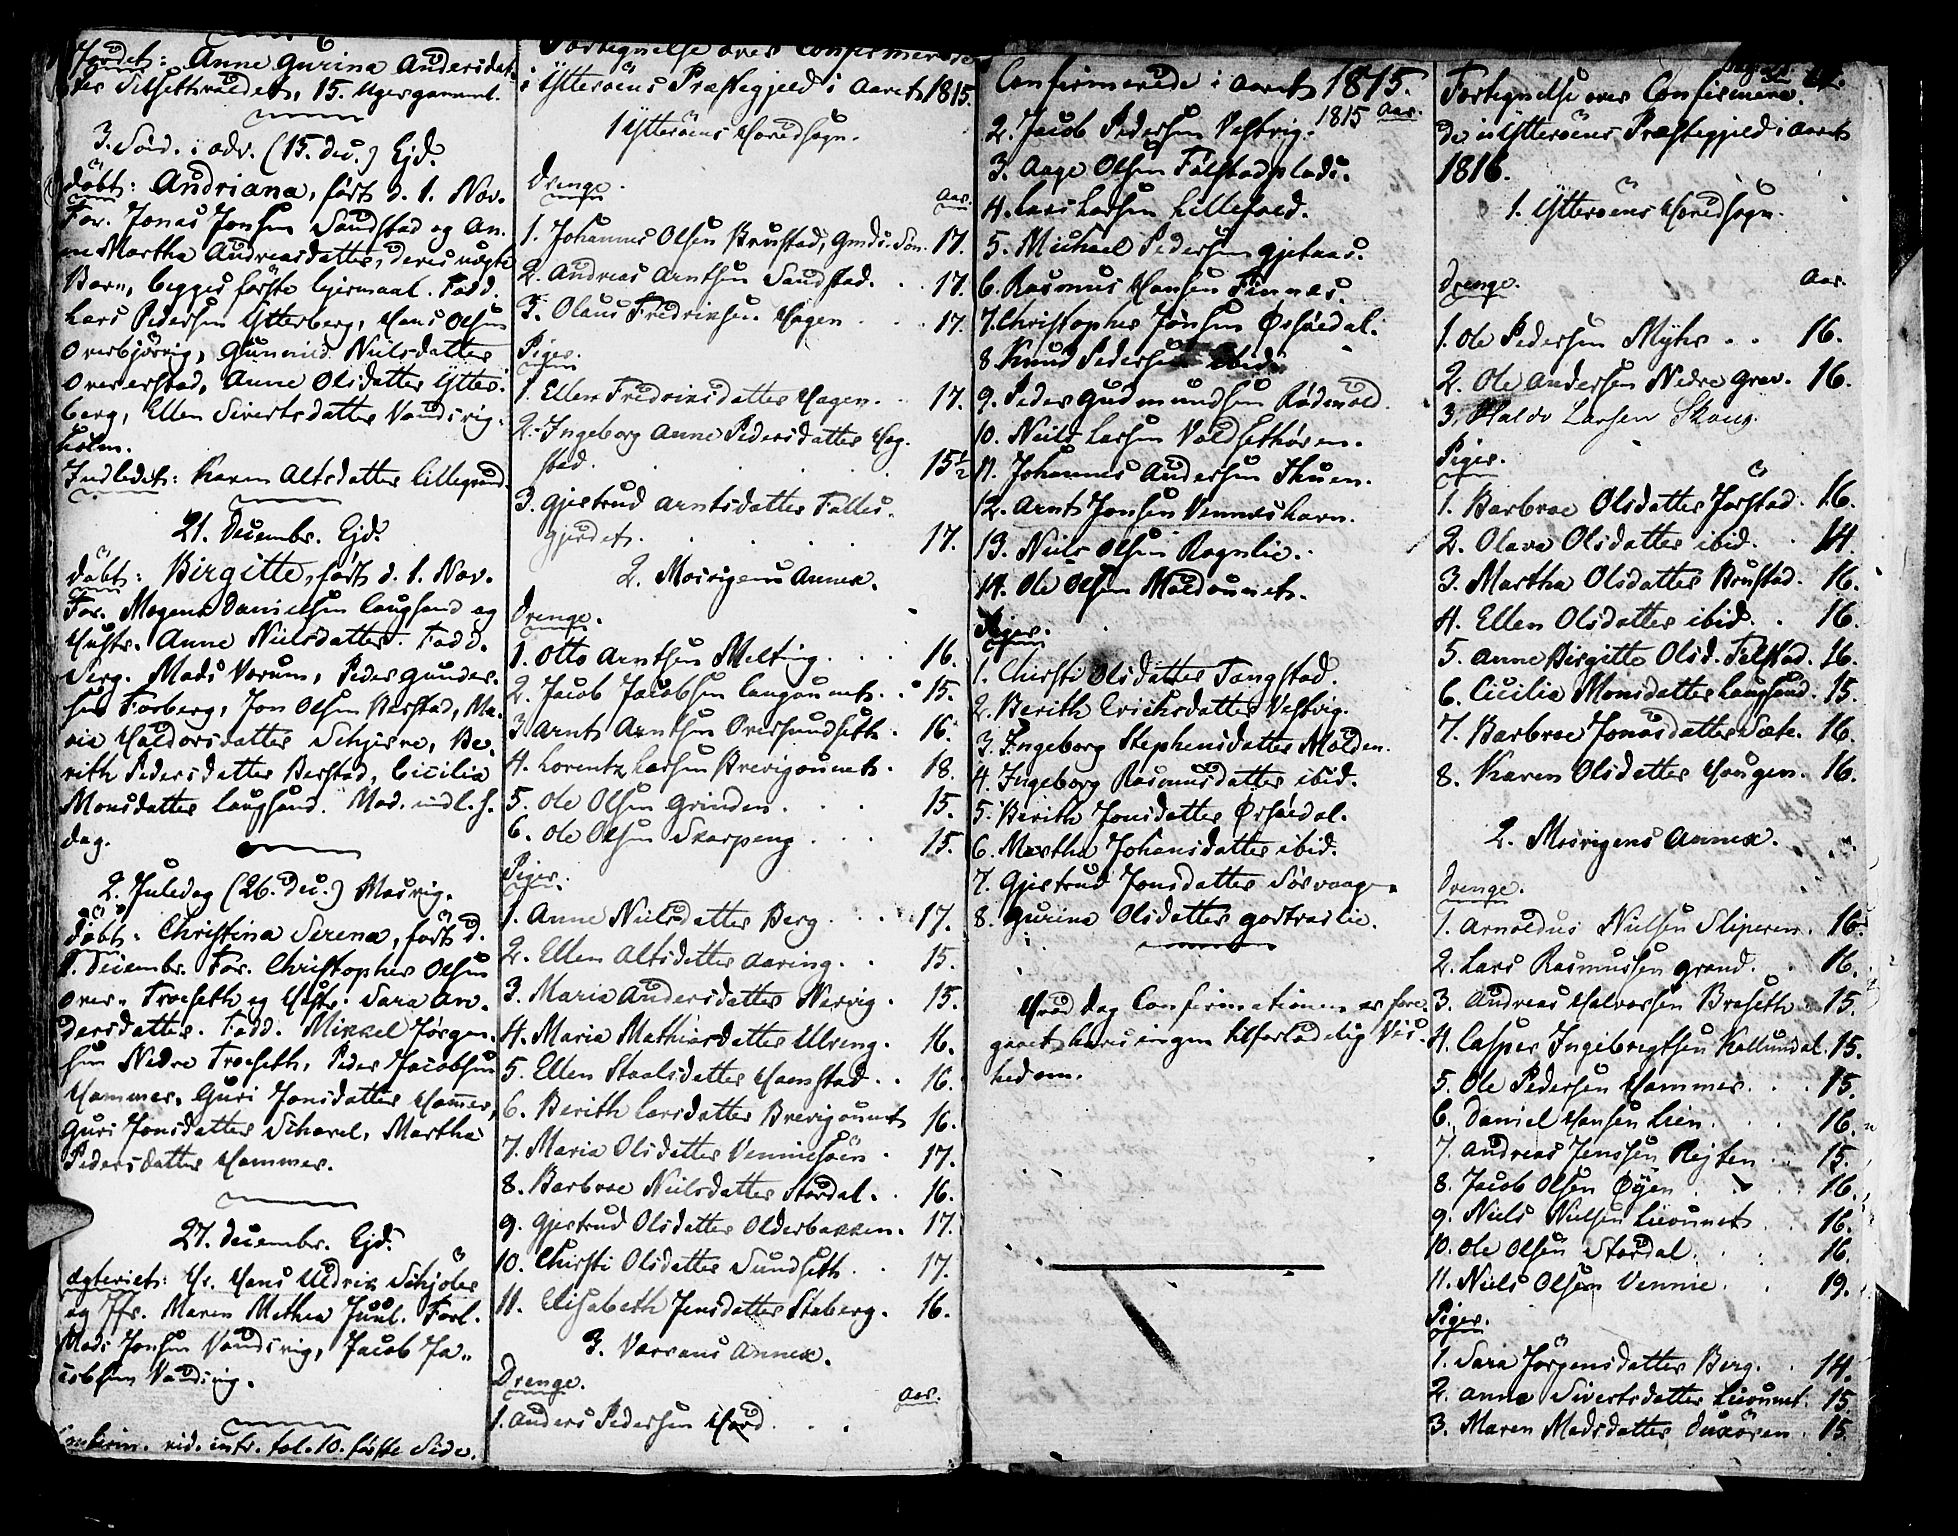 Jordet: Anne Gurina Andersdat-
ter Silsethvaldet, 15. Uger gammel.
3. Sönd. i adv. (15. dec.) Ejd.
döbt: Andriana, födt d. 1. Nov.
For. Jonas Jonsen Sandstad og An-
ne Martha Andreasdatter, deres uægte
Barn, begges første Lejermaal. Fadd.
Lars Pedersen Ytterberg, Hans Olsen
Overbjörvig, Gunnild Nielsdatter
Overerstad, Anne Olsdatter Ytter-
berg, Ellen Sivertsdatter Vandvig-
holm.
Indledet: Karen Altsdatter Lillegrund.
21. Decembr. Ejd.
döbt: Birgitte, födt d. 1. Nov.
For. Mogens Danielsen Laugsand og
Hustr. Anne Nielsdatter. Fadd.
Serg. Mads Vorum, Peder Gunder-
sen Forberg, Jon Olsen Berstad, Ma-
rie Haldorsdatter Schjerve, Be-
rith Pedersdatter Berstad, Cicilia
Monsdatter Laugsand. Mod. indl. s.
dag.
2. Juledag (26. Dec.) Mosvig.
döbt: Christina Serena, födt d.
1. Decembr. For. Christopher Olsen
Over-Troeseth og Hustr. Sara An-
dersdatter. Fadd. Mikael Jørgen-
sen Nedre Troeseth, Peder Jacobsen
Hammer, Guri Jonsdatter Hamer,
Guri Jonsdatter Scharel, Martha
Pedersdatter Hammer.
27. Decembr. Ejd.
Ægteviet: Hr. Hans Uldrik Schjöler
og Jfr. Maren Methea Juul. Forl.
Mads Jonsen Vandvig, Jacob Ja-
cobsen Vandvig.
vid. intr. fol. 10. første Side.
Fortegnelse over Confirmerede
i Ytteröens Præstegjeld i Aaret 1815.
1 Ytteröens Hovedsogn.
Drenge.
Aar.
1. Johannes Olsen Brustad, Gmds. Søn. 17.
2. Andreas Arntsen Sandstad. 17.
3. Olaus Fredriksen Hagen 17.
Piger.
1. Ellen Fredriksdatter Hagen. 17.
2. Ingeborg Anne Pedersdatter Hog-
stad. 15½
3. Gjertrud Arntsdatter Falles-
gjerdet. 17.
2. Mosvigens Annex.
Drenge.
1. Otto Arntsen Melting. 16.
2. Jacob Jacobsen Langounet. 15.
3 Arnt Arntsen Oversundseth. 16.
4. Lorentz Larsen Brevigounet. 18.
5. Ole Olsen Grinden. 15.
6. Ole Olsen Skarpeng 15.
Piger.
1. Anne Nielsdatter Berg. 17.
2. Ellen Altsdatter Aaring. 15.
3. Maria Andersdatter Nervig. 15.
4. Maria Mathiasdatter Ulveng. 16.
5. Ellen Staalsdatter Hamstad. 16.
6. Berith Larsdatter Brevigounet 16.
7. Maria Olsdatter Venniesöen. 17.
8. Barbroe Nielsdatter Stordal. 16.
9. Gjertrud Olsdatter Olderbakken. 17.
10. Chirsti Olsdatter Sundseth. 17.
11. Elisabeth Jensdatter Staberg. 16.
3. Verrans Annex.
Drenge.
Aar.
1. Anders Pedersen
Confirmerede i Aaret 1815.
1815 Aar.
2. Jacob Pedersen Vestvig.
3. Aage Olsen Folstadplads.
4. Lars Larsen Lillefold.
5. Michael Pedersen Gjetaas.
6. Rasmus Hansen Finnes.
7. Christopher Jönsen Ørsöedal.
8. Knud Pedersen ibid.
9. Peder Gudmundsen Rödvold.
10. Niels Larsen Voldsethören.
11. Johannes Andersen Thuen.
12. Arnt Jonsen Venneshavn.
13. Niels Olsen Rognlie.
14. Ole Olsen Moldounet.
Piger.
1. Chirsti Olsdatter Tangstad.
2. Berith Erichsdatter Vestvig.
3. Ingeborg Stephensdatter Molden.
4. Ingeborg Rasmusdatter ibid.
5. Berith Jonsdatter Ørsöedal.
6. Martha Johansdatter ibid.
7. Gjertrud Jonsdatter Sörvaage.
8. Gurine Olsdatter Gortraslie.
Hvad dag Confirmationen er fore-
gaaet haves ingen tilforladelig Vis-
hed om.
Fortegnelse over Confirmere-
de i Ytteröens Præstegjeld i Aaret
1816.
1. Ytteröens Hovedsogn.
Drenge. Aar.
1. Ole Pedersen Myhr 16.
2. Ole Andersen Nedre Grav. 16.
3. Haldo Larsen Skaug.
Piger.
1. Barbroe Olsdatter Jörstad. 16.
2. Olava Olsdatter ibid. 14.
3. Martha Olsdatter Brustad. 16.
4. Ellen Olsdatter ibid. 16.
5. Anne Birgitte Olsd. Felstad. 16.
6. Cicilia Monsdatter Laugsand. 15.
7. Barbroe Jonasdatter Sæte. 16.
8. Karen Olsdatter Haugen. 16.
2. Mosvigens Annex.
Drenge.
1. Arnoldus Nielsen Sliperen. 16.
2. Lars Rasmussen Grand. 16.
3. Andreas Halvorsen Braseth 15.
4. Casper Ingebregtsen Kallundal. 15.
5. Ole Pedersen Hammer. 15.
6. Daniel Hansen Lien. 16.
7. Andreas Jenssen Rejten 15.
8. Jacob Olsen Øyen 16.
9. Niels Nielsen Lieounet 16.
10. Ole Olsen Stordal. 16.
11. Niels Olsen Vennie. 19.
Piger.
1. Sara Jörgensdatter Berg. 14.
2. Anne Sivertsdatter Lieounet. 15.
3. Maren Madsdatter Duaören. 15.